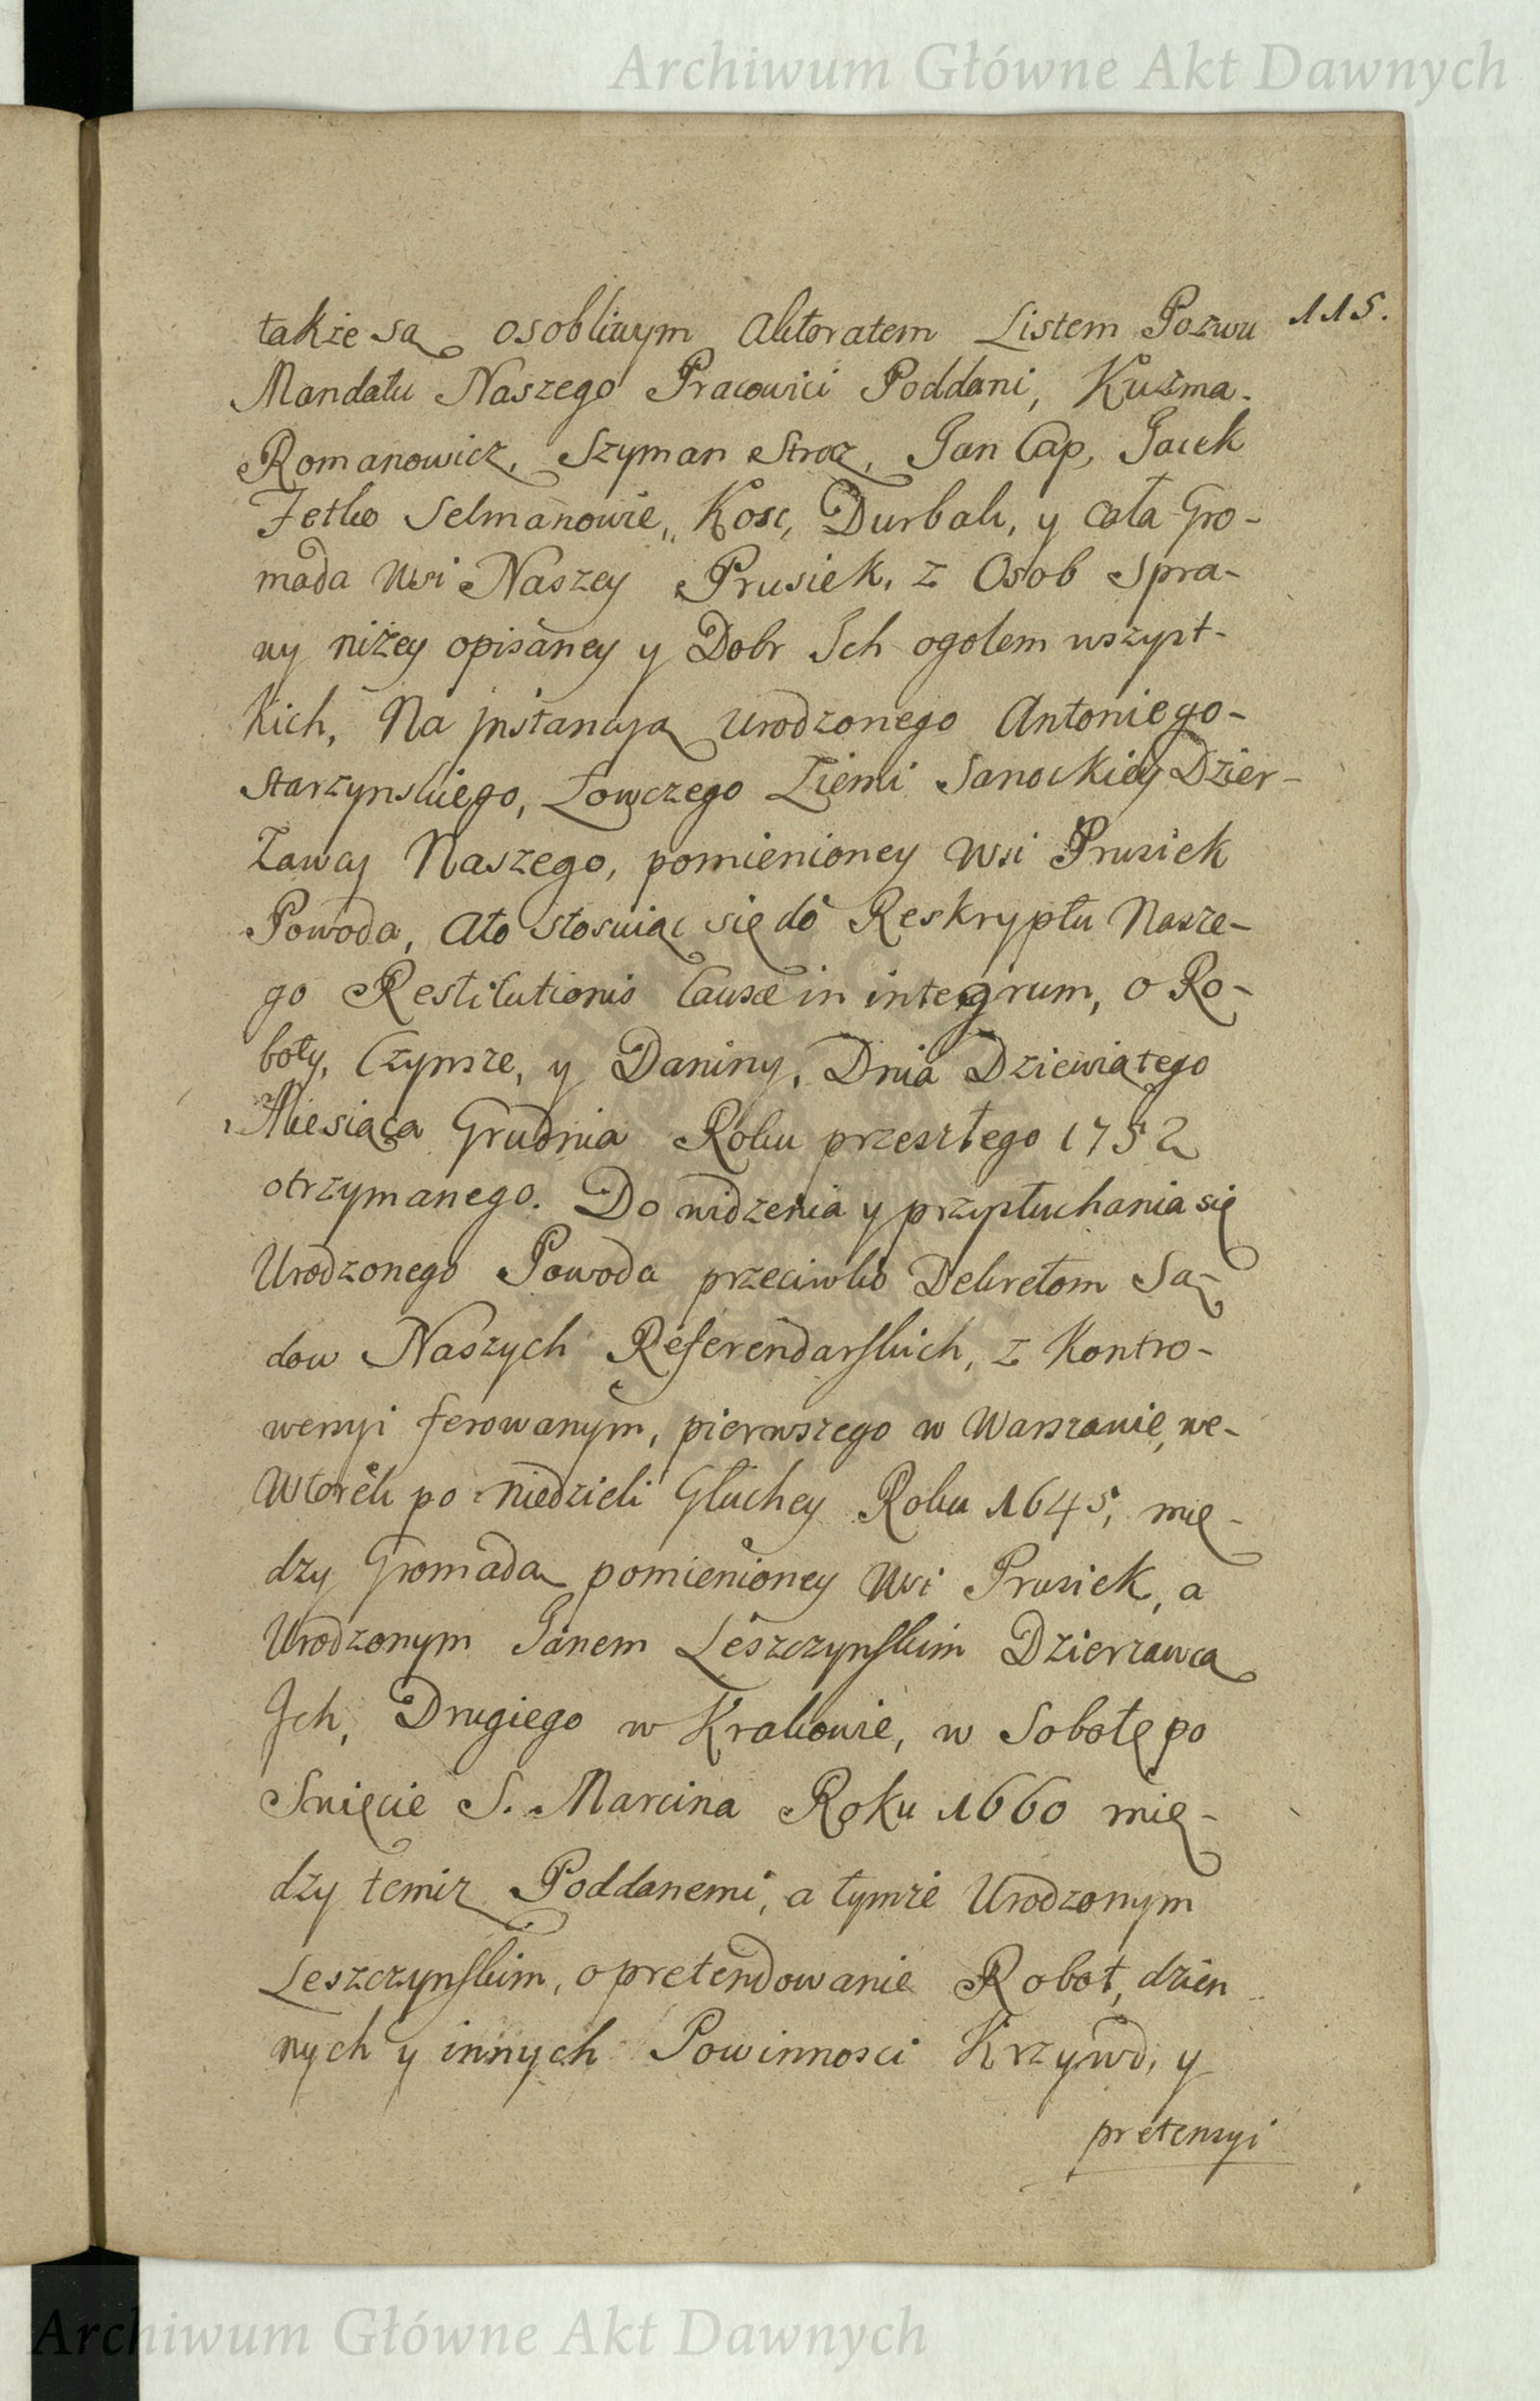 Archiwum Główne Akt Dawnych
115.
także są osobliwym Aktoratem Listem Pozwu
Mandatu Naszego Pracowici Poddani, Kuźma
Romanowicz, Szyman Stroz, Jan Cap, Jacek
Fetko Selmanowie, Kosc, Durbak, y cała Gro-
mada Wsi Naszey Prusiek, z Osob Spra-
wy niżey opisaney y Dobr Ich ogolem wszyst-
kich, Na jnstancyą Urodzonego Antoniego-
Starzynskiego, Łowczego Ziemi Sanockiey Dzier-
żawcy Naszego, pomienioney Wsi Prusiek
Powoda, Ato stosuiąc się do Reskryptu Nasze-
go Restitutionis Causæ in integrum, o Ro-
boty, Czynsze, y Daniny, Dnia Dziewiątego
Miesiąca Grudnia Roku przeszłego 1752
otrzymanego. Do widzenia y przysłuchania się
Urodzonego Powoda przeciwko Dekretom Są-
dow Naszych Referendarskich, z Kontro-
wersyi ferowanym, pierwszego w Warszawie, we-
Wtorek po Niedzieli Głuchey Roku 1645, mię-
dzy Gromadą pomienioney Wsi Prusiek, a
Urodzonym Janem Leszczynskim Dzierzawcą
Ich, Drugiego w Krakowie, w Sobotę po
Święcie S. Marcina Roku 1660 mię-
dzy temiz Poddanemi, a tymże Urodzonym
Leszczynskim, o pretendowanie Robot, dzien
nych y innych Powinnosci Krzywd, y
pretensyi
Archiwum Główne Akt Dawnych